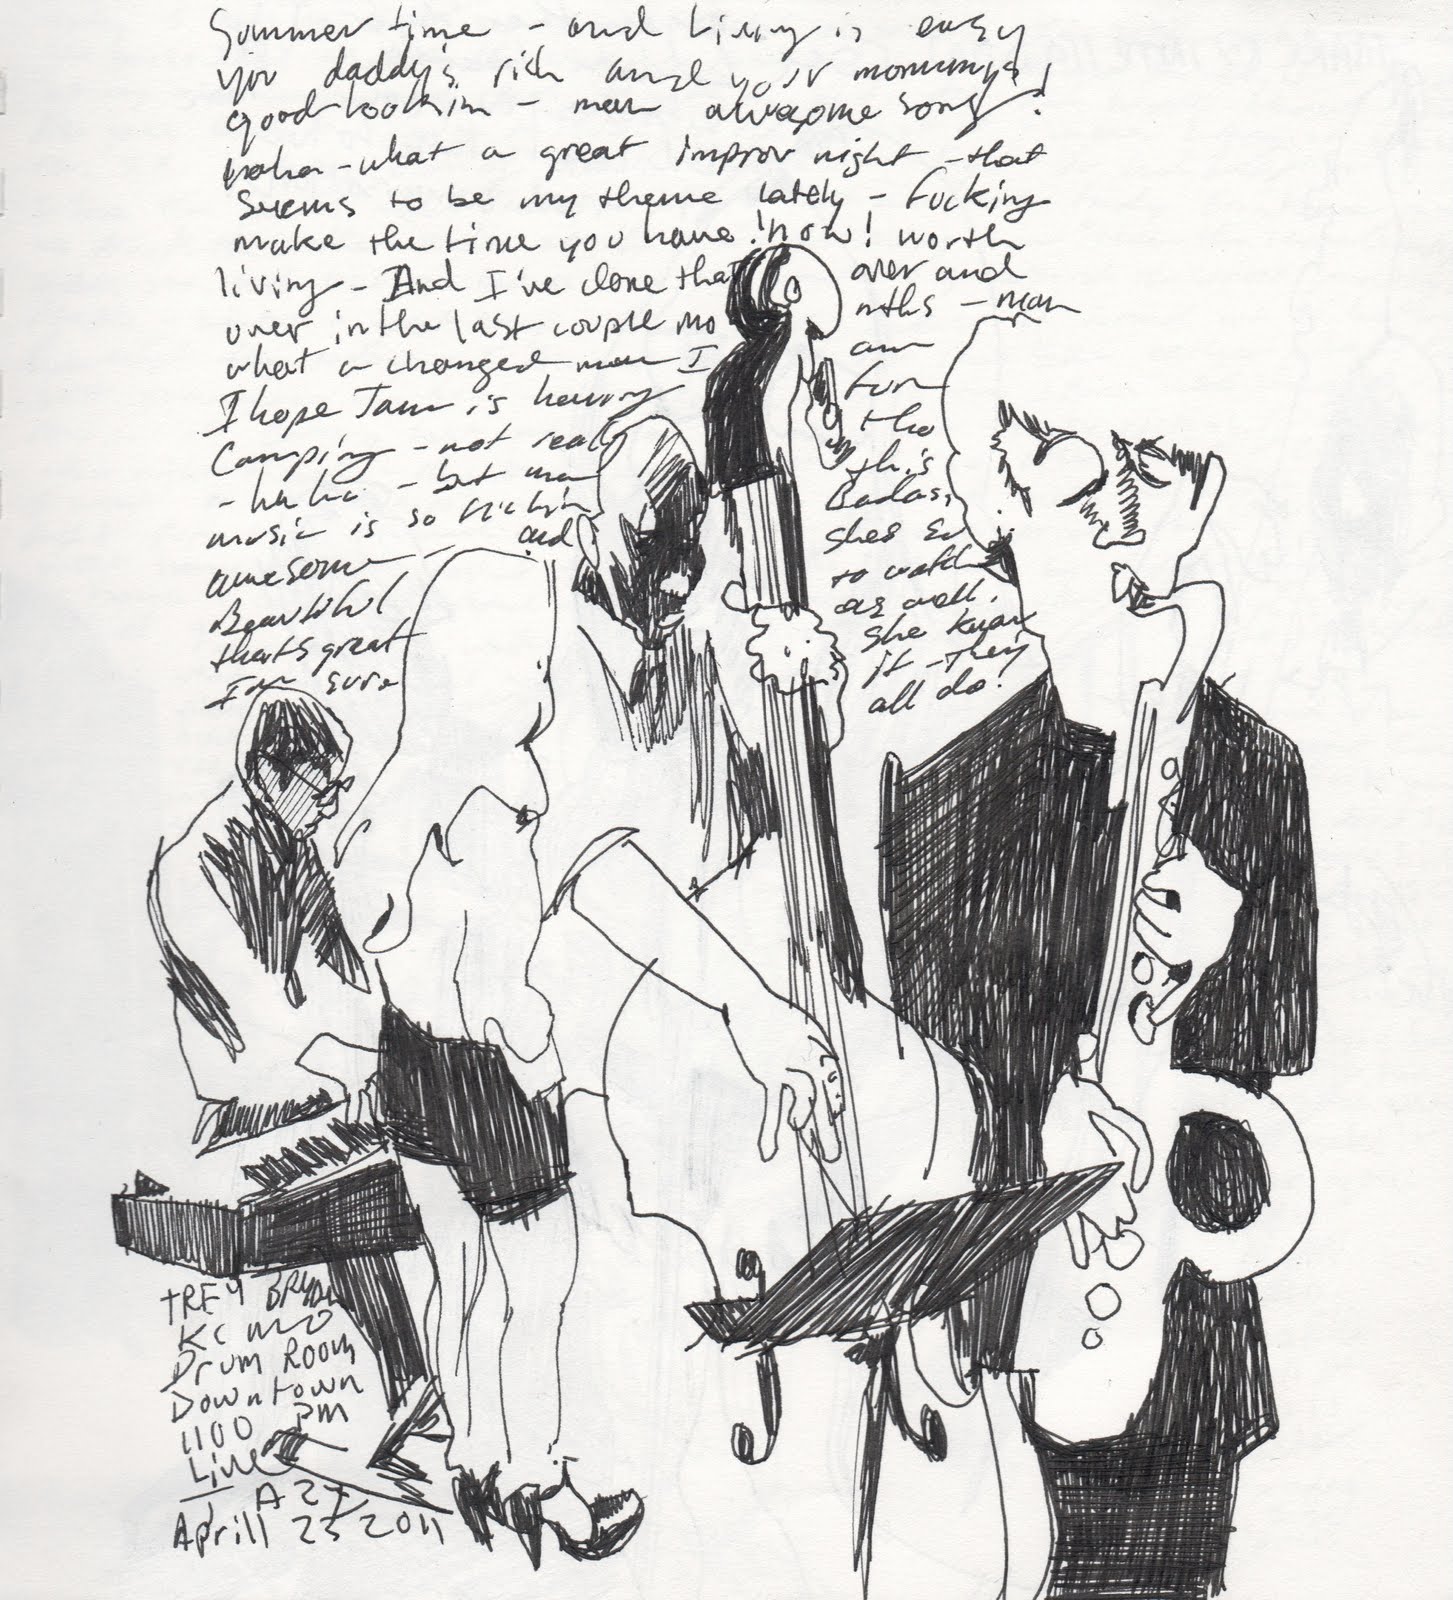 Summertime - and living is easy
you daddy's rich and your mommys
good lookin - man awesome song!
haha - what a great improv night - that
seems to be my theme lately - fucking
make the time you have! now! worth
living - And I've done that over and
over in the last couple months - man
what a changed man I am
I hope Jam is having fun
Camping - not really tho
- haha - but man this
music is so kickin Badass,
awesome - and shes
Beautiful to watch
thats great as well.
I'm sure she know
it - They
all do!
TREY BRYAN
KC MO
Drum Room
Downtown
1100 PM
Live
JAZZ
Aprill 23 2011